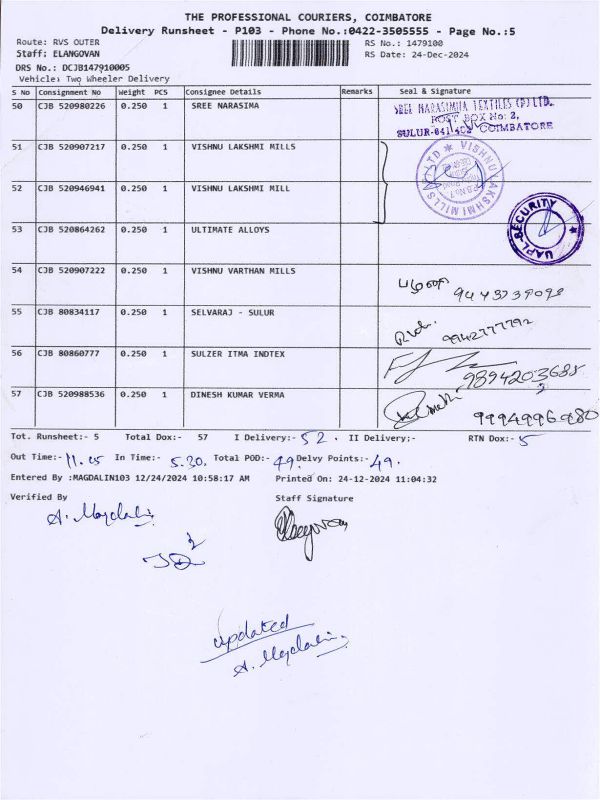 THE PROFESSIONAL COURIERS, COIMBATORE
Delivery Runsheet - P103 - Phone No.:0422-3505555 - Page No.:5
Route: RVS OUTER RS No.: 1479100
Staff: ELANGOVAN RS Date: 24-Dec-2024
DRS No.: DCJB147910005
Vehicle: Two Wheeler Delivery
S No Consignment No Weight PCS Consignee Details Remarks Seal & Signature
50 CJB 520980226 0.250 1 SREE NARASIMA
SREE NARASIMHA TEXTILES (P) LTD.
POST BOX No: 2,
SULUR-641 402 COIMBATORE
51 CJB 520907217 0.250 1 VISHNU LAKSHMI MILLS
VISHNU LAKSHMI MILLS P LTD
52 CJB 520946941 0.250 1 VISHNU LAKSHMI MILL
53 CJB 520864262 0.250 1 ULTIMATE ALLOYS
UAPL-SECURITY
54 CJB 520907222 0.250 1 VISHNU VARTHAN MILLS
55 CJB 80834117 0.250 1 SELVARAJ - SULUR 9942777792
56 CJB 80860777 0.250 1 SULZER ITMA INDTEX 9894203685
57 CJB 520988536 0.250 1 DINESH KUMAR VERMA 9994996980
Tot. Runsheet:- 5 Total Dox:- 57 I Delivery:- 52. II Delivery:- RTN Dox:- 5
Out Time:- 11.05 In Time:- 5.30. Total POD:- 49. Delvy Points:- 49.
Entered By :MAGDALIN103 12/24/2024 10:58:17 AM Printed On: 24-12-2024 11:04:32
Verified By Staff Signature
A. Magdalin
updated
A. Magdalin